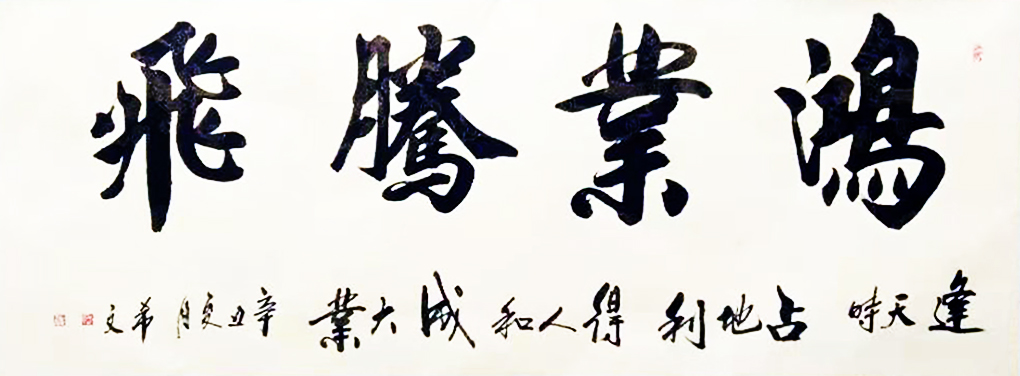 鴻業騰飛
逢天時占地利得人和成大業辛丑夏月希文